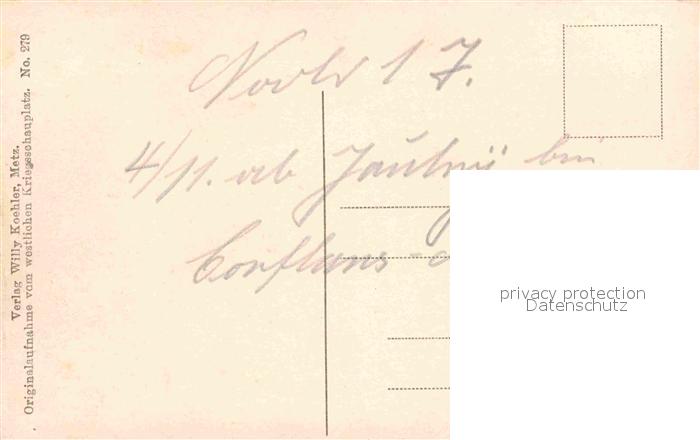 Verlag Willy Koehler, Metz.
Originalaufnahme vom westlichen Kriegsschauplatz. No. 279
17.
4/11. ab Jaulny bis
Conflans-
privacy protection
Datenschutz